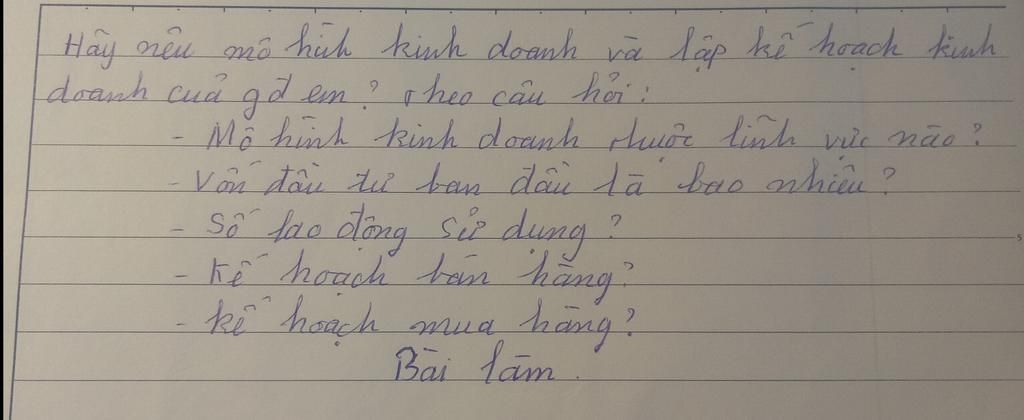 Hãy nêu mô hình kinh doanh và lập kế hoạch kinh
doanh của gđ em? theo câu hỏi:
- Mô hình kinh doanh thuộc lĩnh vực nào?
- Vốn đầu tư ban đầu là bao nhiêu?
- Số lao động sử dụng?
- Kế hoạch bán hàng?
- kế hoạch mua hàng?
Bài làm.